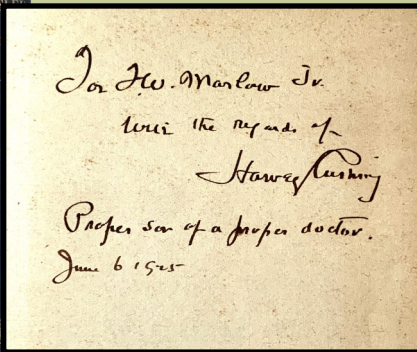 For F.W. Marlow Jr.
with the regards of
Harvey Cushing
Proper son of a proper doctor.
June 6 1925